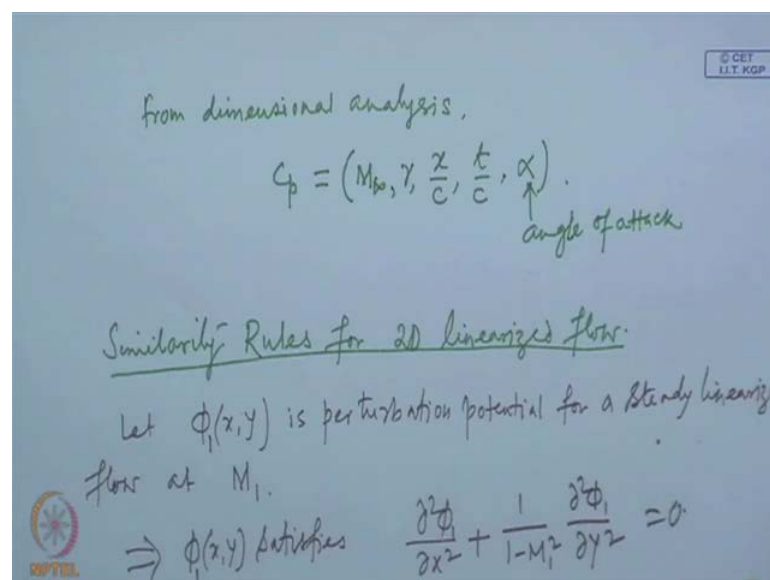 © CET
I.I.T. KGP
from dimensional analysis,
Cp = (M∞, γ, x/c, t/c, α).
angle of attack
Similarity Rules for 2D linearized flow.
Let ϕ₁(x,y) is perturbation potential for a steady lineariz
flow at M₁.
⇒ ϕ₁(x,y) satisfies ∂²ϕ₁/∂x² + 1/(1-M₁²) ∂²ϕ₁/∂y² = 0
NPTEL